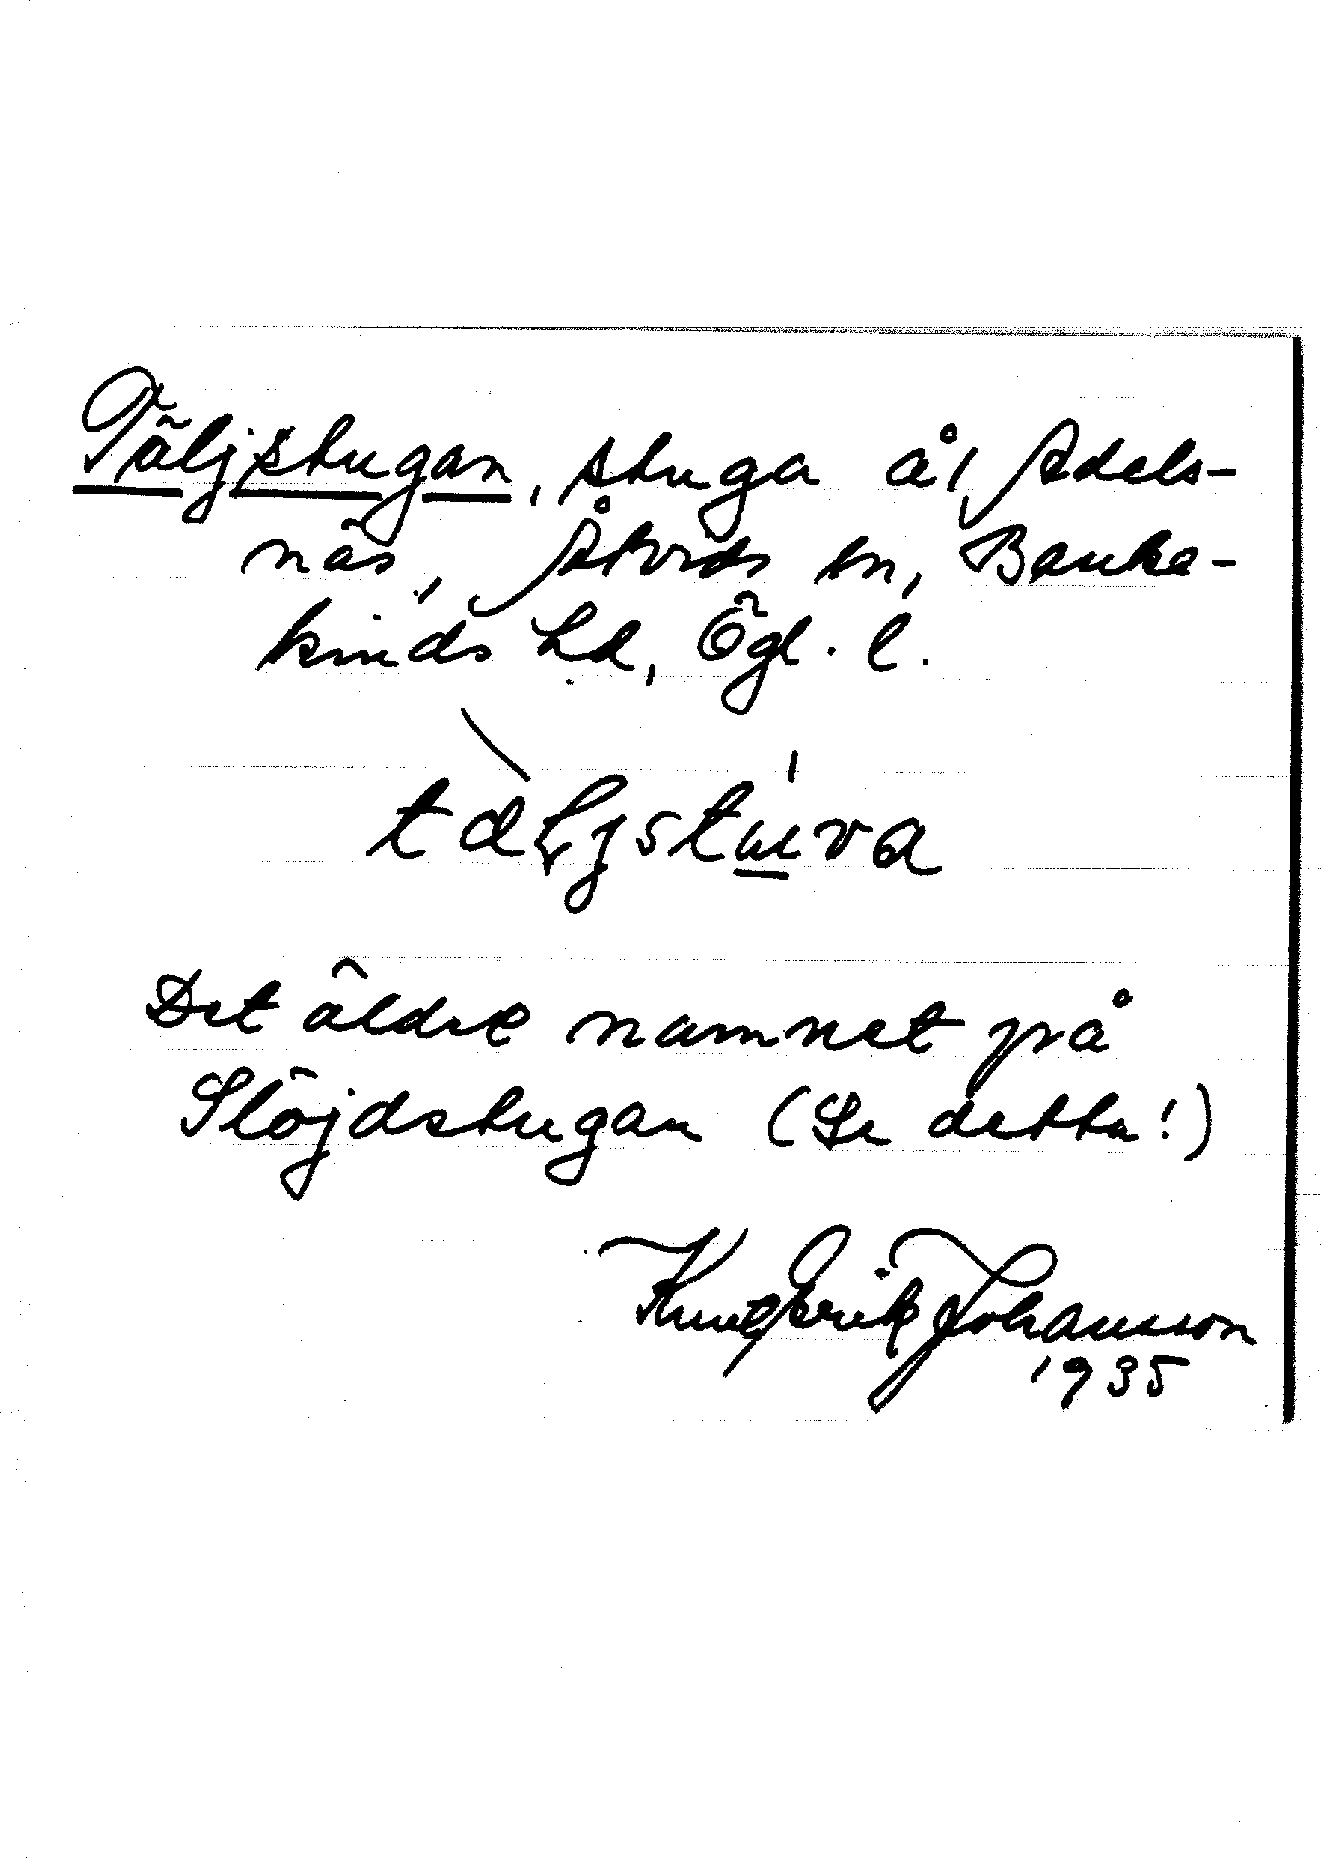 Täljstugan, stuga å Adels-
näs, Åtvids sn, Banke-
kinds hd, Ögl. l.
tæljstuva
Det äldre namnet på
Slöjdstugan (Se detta!)
Knut Erik Johansson
1935